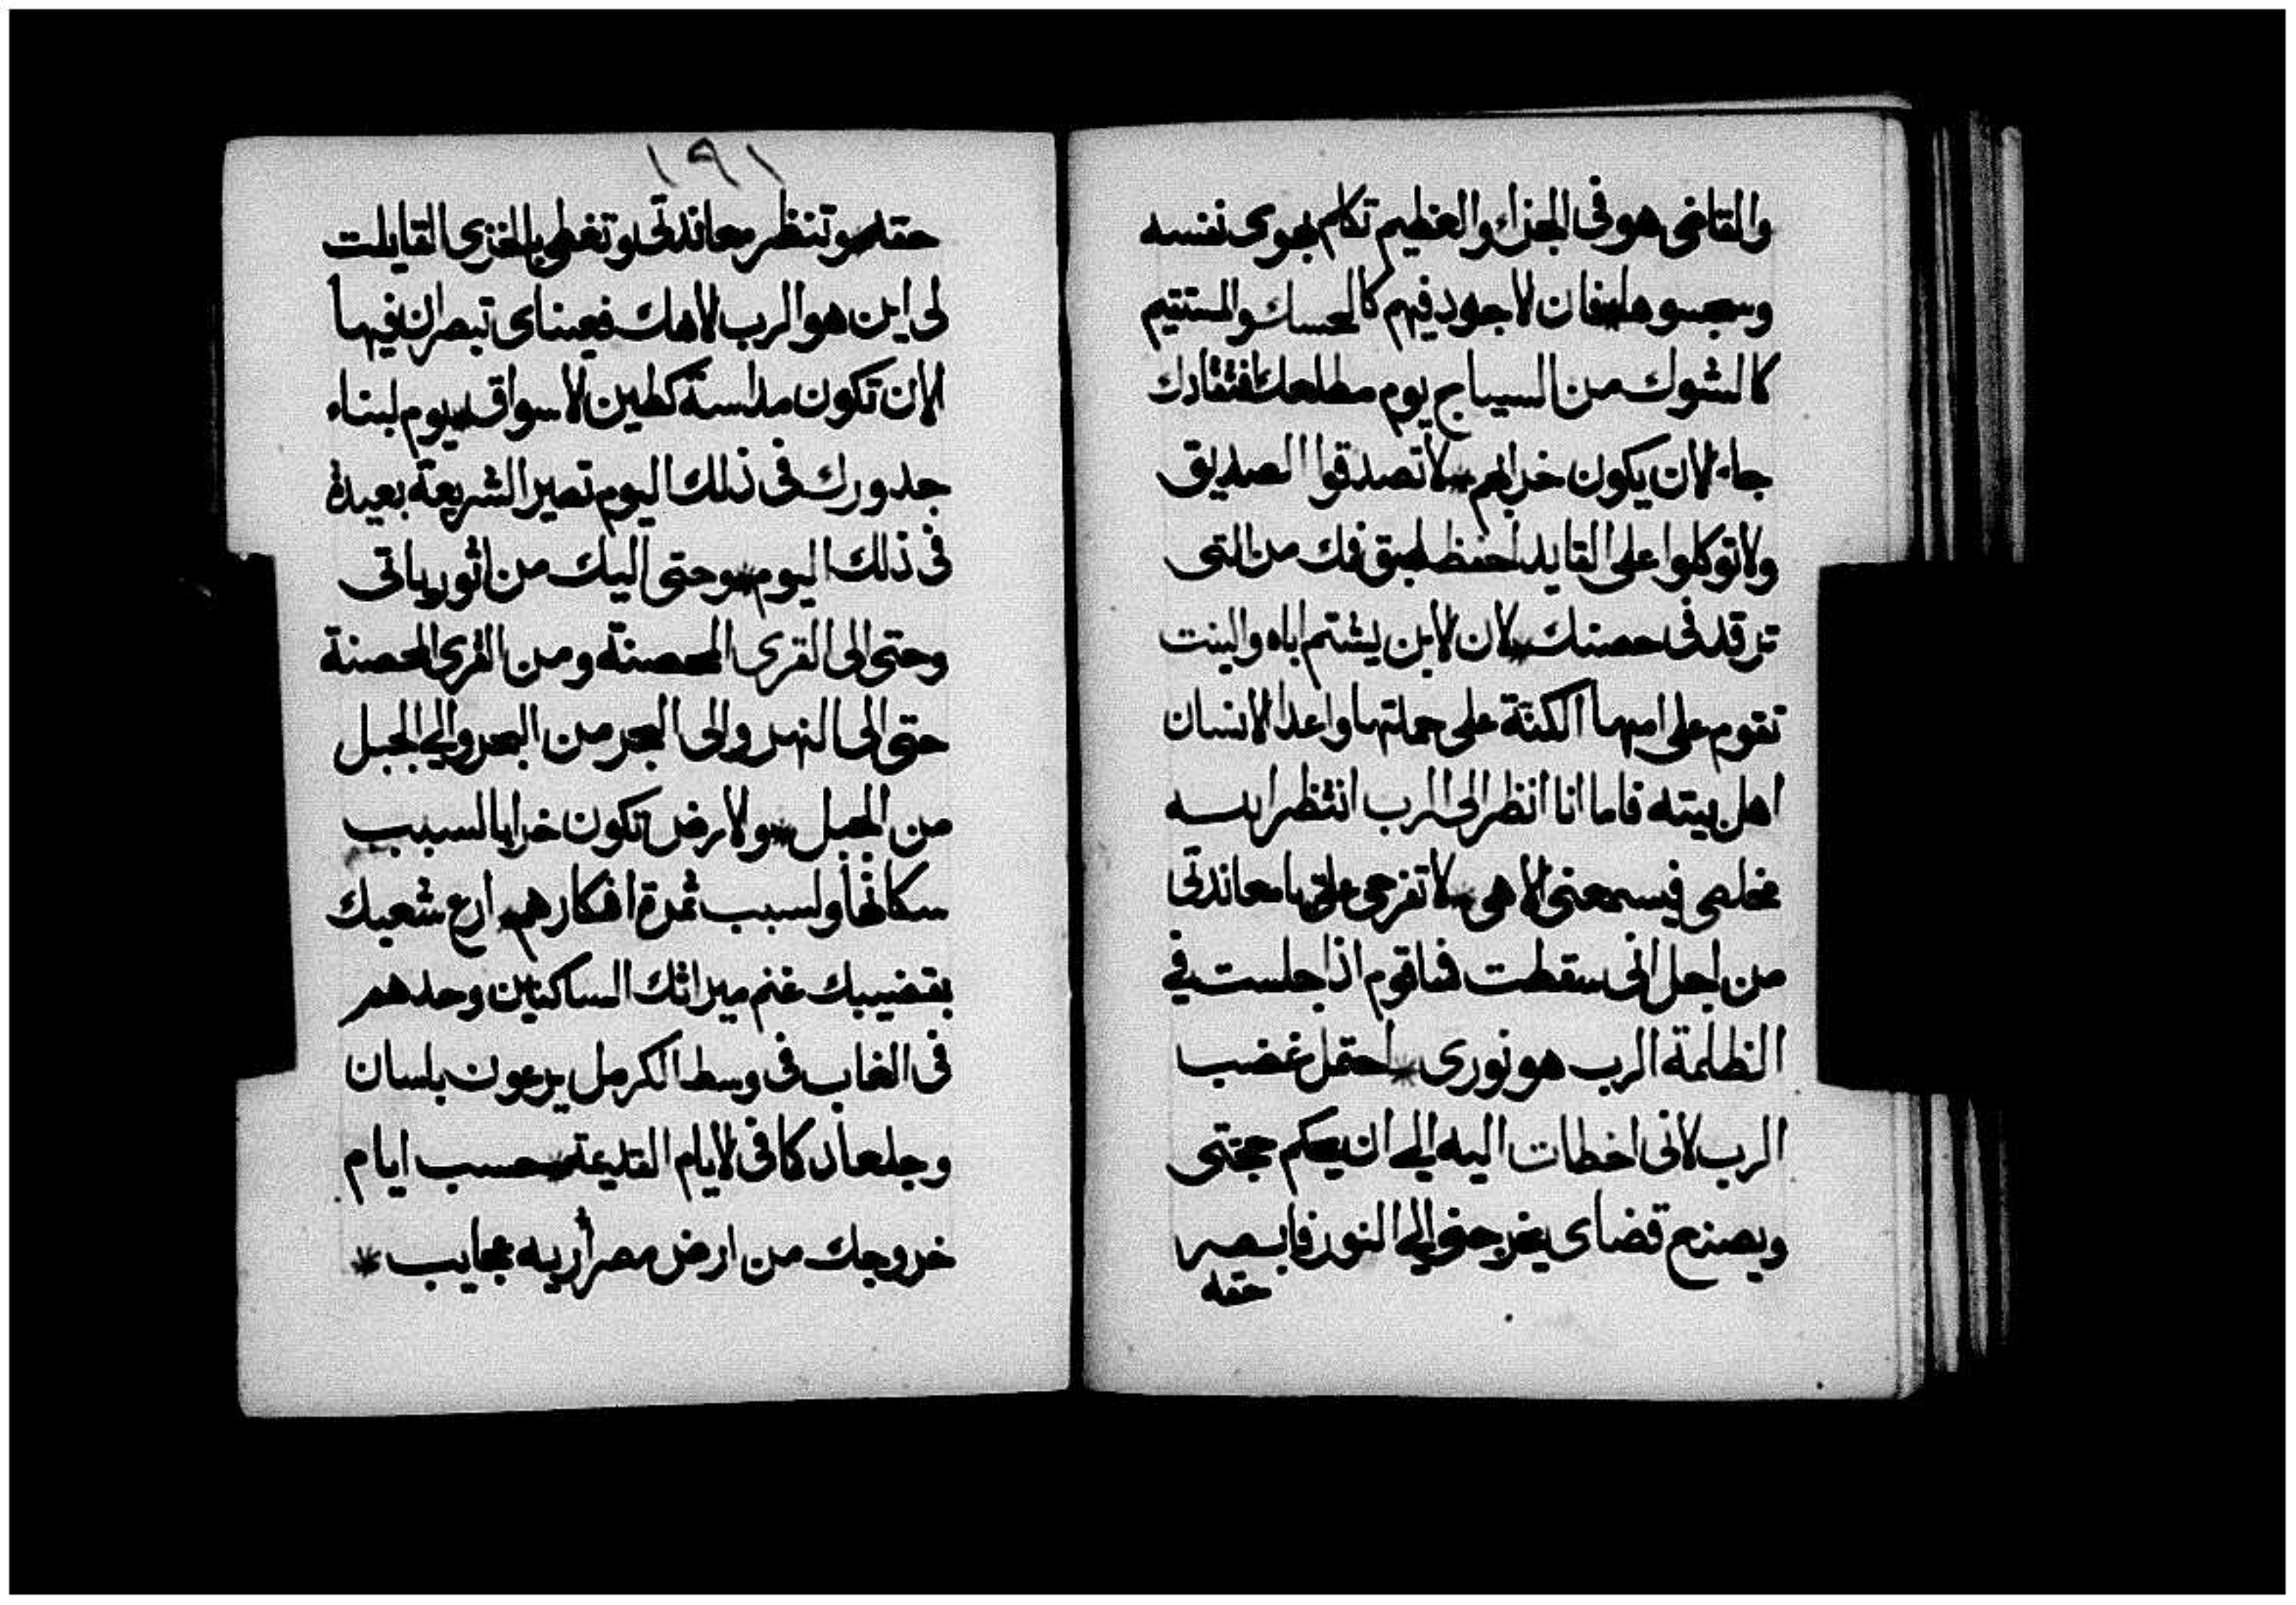 والقاضى هو فى الجزاء والعظيم تكلم بهوى نفسه
لاجود فيهم كالحسك والمستقيم
كالشوك من السياج يوم مطلعك افتقادك
جاء لان يكون خرابهم * لا تصدقوا الصديق
ولا توكلوا على القايد احفظ لعق فمك من التى
ترقد فى حضنك * لان الابن يشتم اباه والبنت
تقوم على امها الكنة على حماتها واعدا الانسان
اهل بيته فاما انا انظر الى الرب انتظر الله
مخلصى فيسمعنى الاهى * لا تفرحى على يا معاندتى
من اجل انى سقطت فساقوم اذا جلست فى
الظلمة الرب هو نورى * احتمل غضب
الرب لانى اخطات اليه الى ان يحكم حجتى
ويصنع قضاى يخرجنى الى النور فابصر
حقه
١٩١
حقه * وتنظر معاندتى وتغطى بالخزى القايلت
لى اين هو الرب الاهك فعيناى تبصران فيها
الان تكون مداسة كطين الاسواق * يوم لبناء
جدورك فى ذلك اليوم تصير الشريعة بعيدة
فى ذلك اليوم * وحتى اليك من اثور ياتى
وحتى الى القرى المحصنة ومن القرى المحصنة
حتى الى النهر والى البحر من البحر والى الجبل
من الجبل * والارض تكون خرابا لسبب
سكانها ولسبب ثمرة افكارهم * ارع شعبك
بقضيبك غنم ميراثك الساكنين وحدهم
فى الغاب فى وسط الكرمل يرعون بلسان
وجلعاد كما فى الايام القديمة * حسب ايام
خروجك من ارض مصر أريه عجايب *